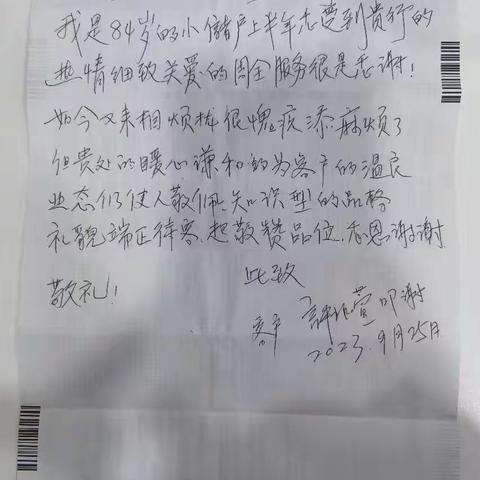 我是84岁的小储户上半年感受到贵行的
热情细致关爱的周全服务很是感谢!
如今又来相烦扰很愧疚添麻烦了
但贵处的暖心谦和的为客户的温良
业态仍使人敬佩知识型的品格
礼貌端正待客,起敬赞品位,感恩谢谢
此致
敬礼!
客户 叩谢
2023.9月25日